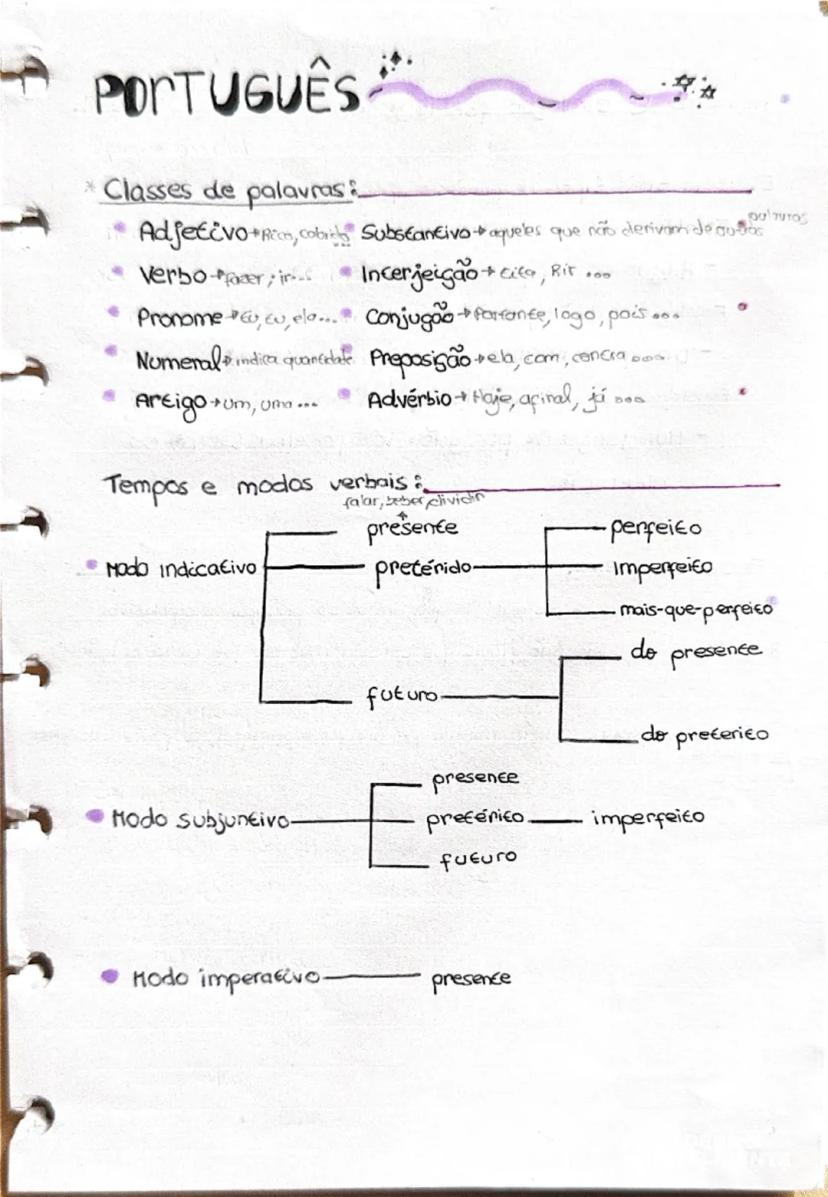 PORTUGUÊS
* Classes de palavras:
Adjetivo → Rico, Substantivo → aqueles que não derivam de outras palavras
Verbo → fazer, ir... Interjeição → Eita, Rir ...
Pronome → Eu, tu, ela... Conjugão → Portante, logo, pois ...
Numeral → indica quantidade Preposisão → ela, com, contra ...
Artigo → um, uma ... Advérbio → Hoje, afinal, já ...
Tempos e modos verbais:
falar, beber, dividir
presente perfeito
Modo indicativo preténido imperfeito
mais-que-perfeito
do presente
futuro
do preterito
presente
Modo subjuntivo pretérito imperfeito
futuro
Modo imperativo presente